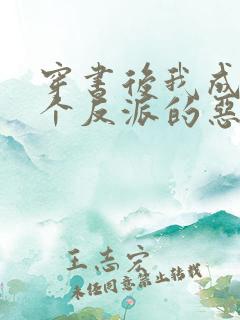 穿书後我成
个反派的恶
王志宏
未经同意禁止转载